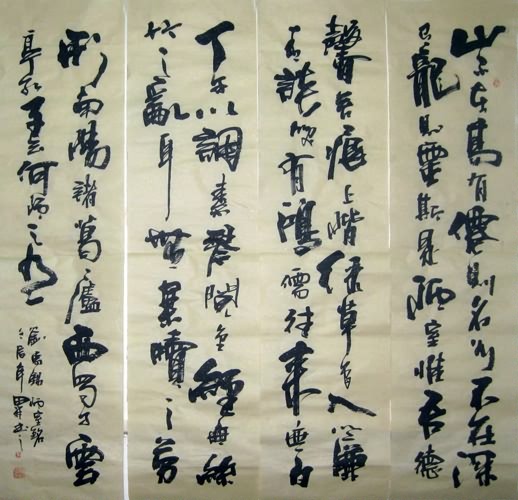 山不在高有僊則名水不在深
有龍則靈斯是陋室惟吾德
馨苔痕上階綠草色入簾
青談笑有鴻儒往來無白
丁可以調素琴閱金經無絲
竹之亂耳無案牘之勞
形南陽諸葛廬西蜀子雲
亭孔子云何陋之有
劉禹錫陋室銘